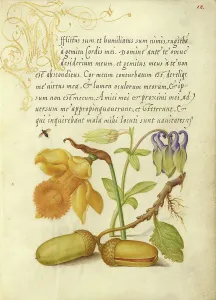 Afflictus sum et humiliatus sum nimis, rugiebā
à gemitu cordis mei. Domine ante te omne
desiderium meum, et gemitus meus à te non
est absconditus. Cor meum conturbatum est, dereliqt
me virtus mea, & lumen oculorum meorum, & ip-
sum non est mecum. Amici mei & proximi mei, ad
versum me appropinquaverunt, & steterunt. Et
qui inquirebant mala mihi locuti sunt vanitates